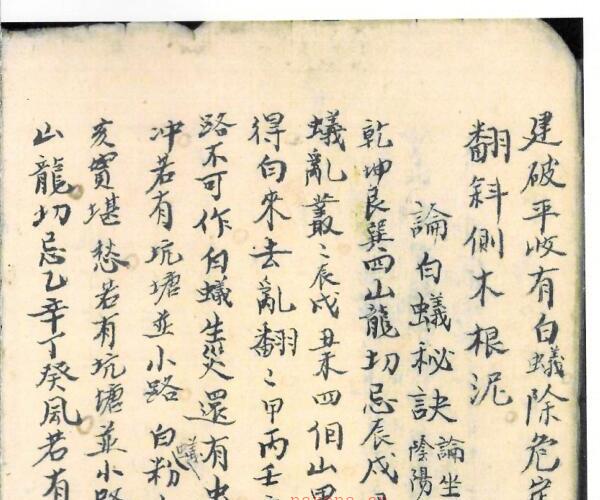 建破平收有白蟻除危定
翻斜側木根泥
論白蟻秘訣 論坐 陰陽
乾坤艮巽四山龍切忌辰戌
蟻亂叢〻辰戌丑未四個山
得白來去亂翻〻甲丙壬
路不可作白蟻生災還有虫
蟻
冲若有坑塘並小路白粉
亥實堪愁若有坑塘並小路
山龍切忌乙辛丁癸風若有